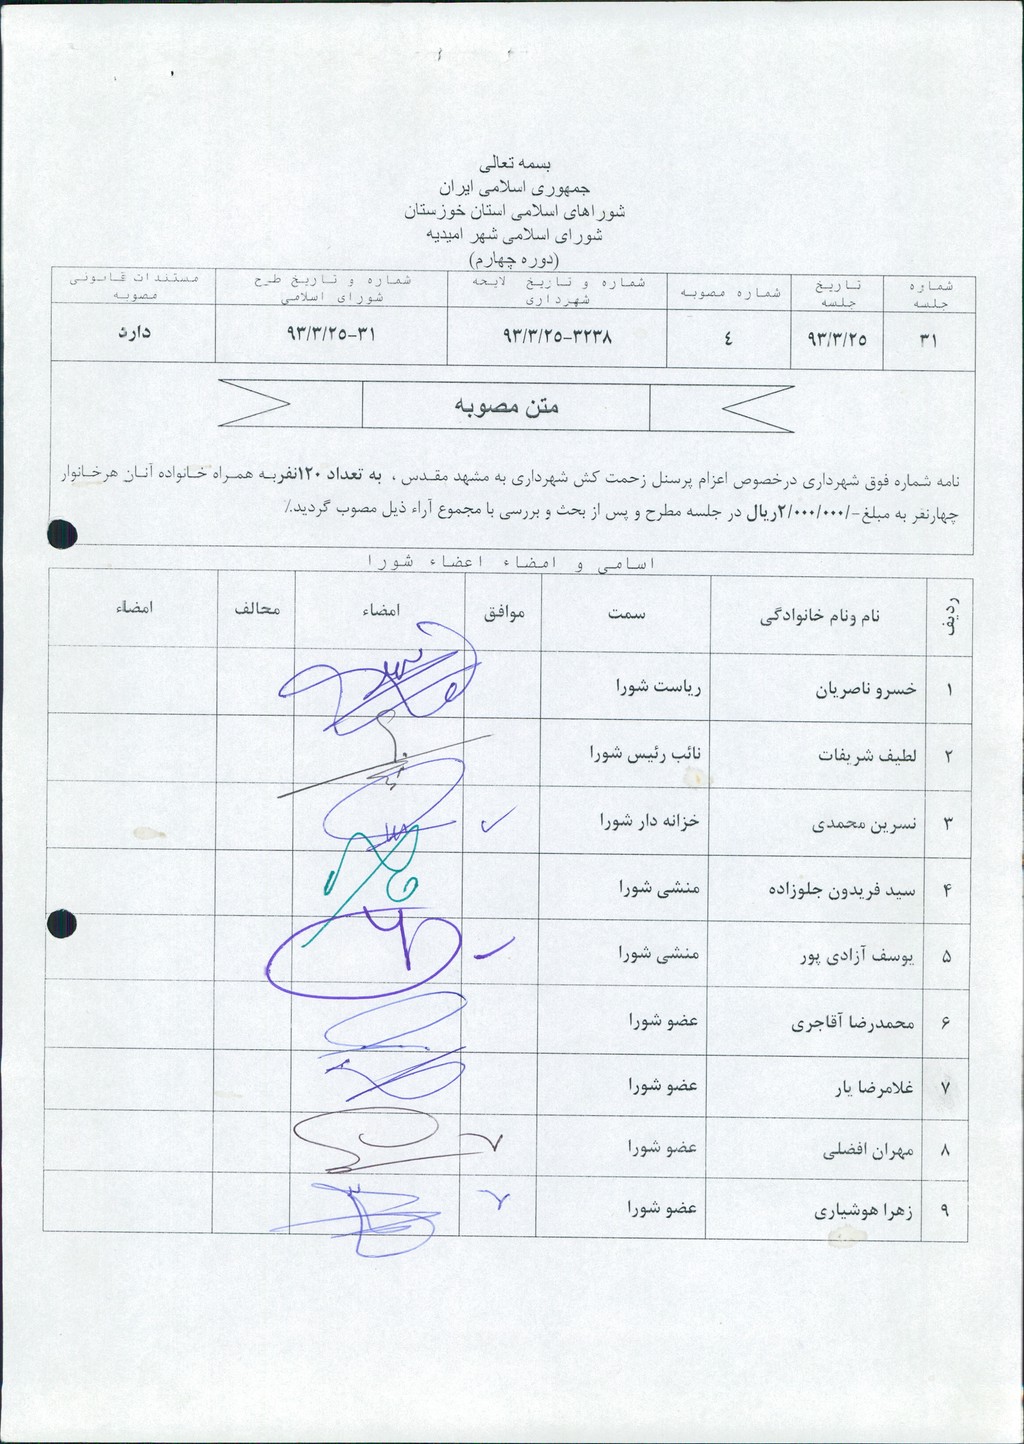 بسمه تعالی
جمهوری اسلامی ایران
شوراهای اسلامی استان خوزستان
شورای اسلامی شهر امیدیه
(دوره چهارم)
شماره جلسه تاریخ جلسه شماره مصوبه شماره و تاریخ لایحه شهرداری شماره و تاریخ طرح شورای اسلامی مستندات قانونی مصوبه
۳۱ ۹۳/۳/۲۵ ٤ ۹۳/۳/۲۵-۳۲۳۸ ۹۳/۳/۲۵-۳۱ دارد
متن مصوبه
نامه شماره فوق شهرداری درخصوص اعزام پرسنل زحمت کش شهرداری به مشهد مقدس ، به تعداد ۱۲۰نفربه همراه خانواده آنان هرخانوار
چهارنفر به مبلغ-/۲/۰۰۰/۰۰۰ریال در جلسه مطرح و پس از بحث و بررسی با مجموع آراء ذیل مصوب گردید.٪
اسامی و امضاء اعضاء شورا
ردیف نام ونام خانوادگی سمت موافق امضاء مخالف امضاء
۱ خسرو ناصریان ریاست شورا
۲ لطیف شریفات نائب رئیس شورا
۳ نسرین محمدی خزانه دار شورا
۴ سید فریدون جلوزاده منشی شورا
۵ یوسف آزادی پور منشی شورا
۶ محمدرضا آقاجری عضو شورا
۷ غلامرضا یار عضو شورا
۸ مهران افضلی عضو شورا
۹ زهرا هوشیاری عضو شورا